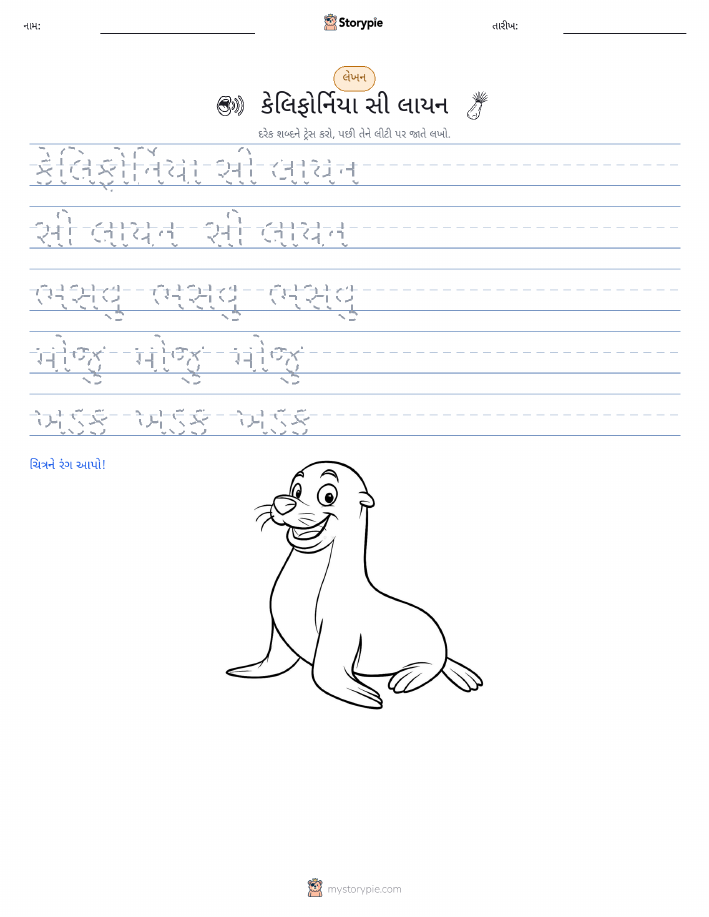 નામ:
Storypie
તારીખ:
લેખન
કેલિફોર્નિયા સી લાયન
દરેક શબ્દને ટ્રેસ કરો, પછી તેને લીટી પર જાતે લખો.
કેલિફોર્નિયા સી લાયન
સી લાયન સી લાયન
ભસવુ ભસવુ ભસવુ
મોજું મોજું મોજું
ખડક ખડક ખડક
ચિત્રને રંગ આપો!
mystorypie.com